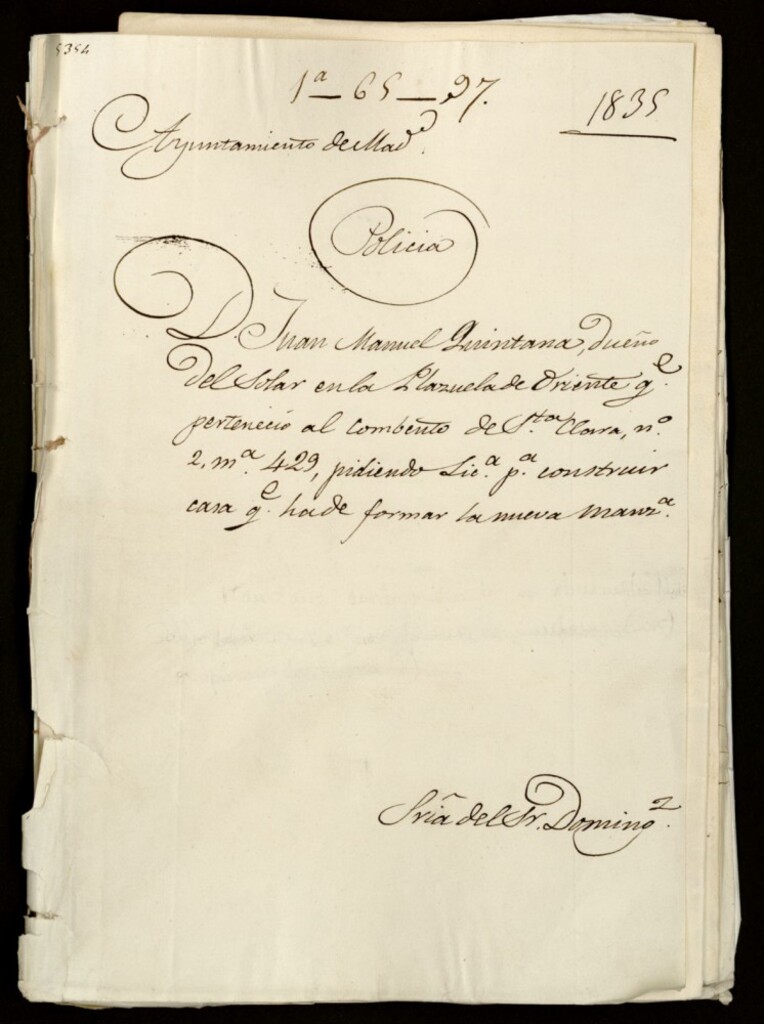 5354
1ª — 65 — 97.
1835
Ayuntamiento de Madᵈ.
Policia
D. Juan Manuel Quintana, dueño
del Solar en la Plazuela de Oriente qᵉ
perteneció al combento de Sᵗᵃ Clara, nº
2, mª 429, pidiendo Licª. pª. construir
casa qᵉ ha de formar la nueva manzª.
Sriã del Sr. Domingᶻ.